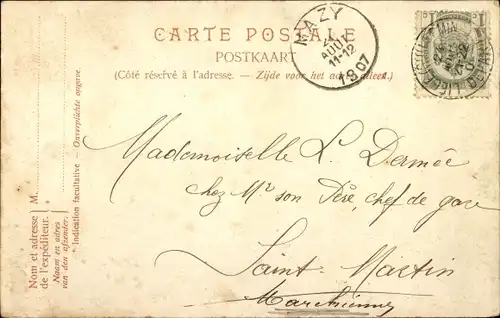 CARTE POSTALE
POSTKAART
(Côté réservé à l'adresse. – Zijde voor het adres alleen.)
MAZY
AOUT
11-12
1907
1
1
Mademoiselle L. Dermée
chez Mr son Père, chef de gare
Saint-Martin
Marchienne
Nom et adresse de l'expéditeur. M.
Naam en adres van den afzender.
Indication facultative – Onverplichte opgave.